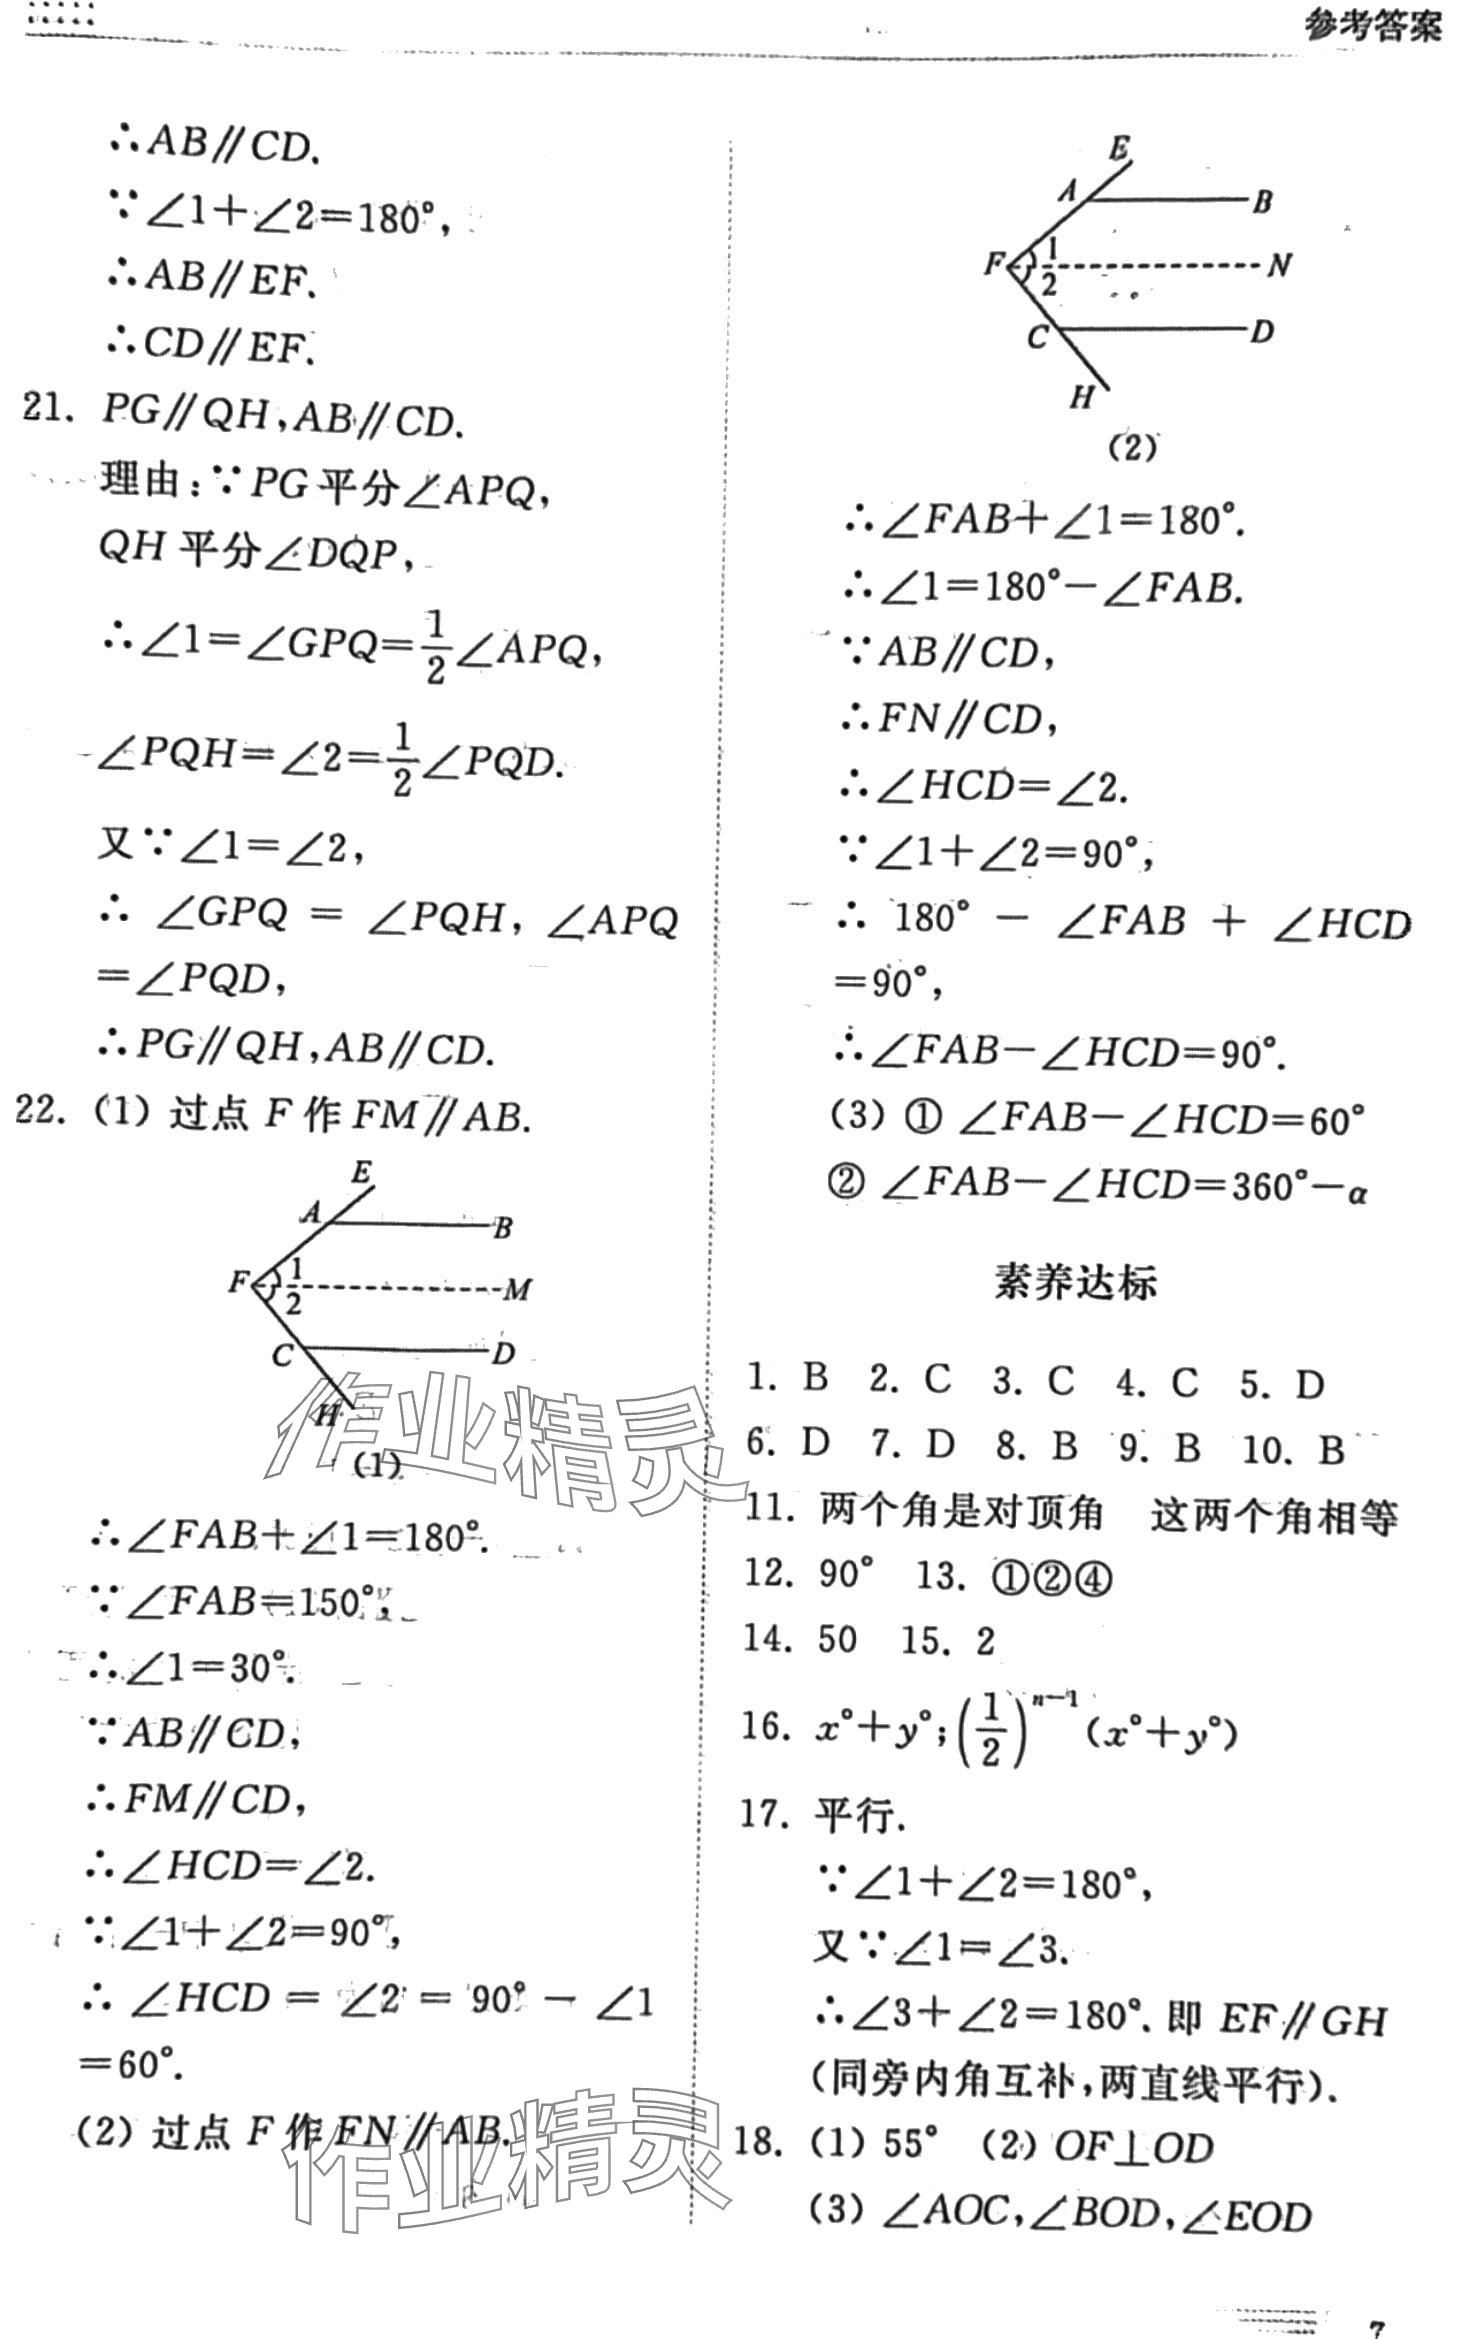 参考答案
∴AB∥CD.
∵∠1+∠2=180°,
∴AB∥EF.
∴CD∥EF.
21. PG∥QH,AB∥CD.
理由:∵PG平分∠APQ,
QH平分∠DQP,
∴∠1=∠GPQ=1/2∠APQ,
∠PQH=∠2=1/2∠PQD.
又∵∠1=∠2,
∴ ∠GPQ = ∠PQH, ∠APQ
=∠PQD,
∴PG∥QH,AB∥CD.
22. (1) 过点 F 作 FM∥AB.
E
A
B
F
1
2
M
C
D
H
(1)
∴∠FAB+∠1=180°.
∵∠FAB=150°,
∴∠1=30°.
∵AB∥CD,
∴FM∥CD,
∴∠HCD=∠2.
∵∠1+∠2=90°,
∴ ∠HCD = ∠2 = 90° - ∠1
=60°.
(2) 过点 F 作 FN∥AB.
E
A
B
F
1
2
N
C
D
H
(2)
∴∠FAB+∠1=180°.
∴∠1=180°-∠FAB.
∵AB∥CD,
∴FN∥CD,
∴∠HCD=∠2.
∵∠1+∠2=90°,
∴ 180° - ∠FAB + ∠HCD
=90°,
∴∠FAB-∠HCD=90°.
(3) ① ∠FAB-∠HCD=60°
② ∠FAB-∠HCD=360°-α
素养达标
1. B 2. C 3. C 4. C 5. D
6. D 7. D 8. B 9. B 10. B
11. 两个角是对顶角 这两个角相等
12. 90° 13. ①②④
14. 50 15. 2
16. x°+y°;(1/2)^(n-1)(x°+y°)
17. 平行.
∵∠1+∠2=180°,
又∵∠1=∠3.
∴∠3+∠2=180°. 即 EF∥GH
(同旁内角互补,两直线平行).
18. (1) 55° (2) OF⊥OD
(3) ∠AOC,∠BOD,∠EOD
7
作业精灵
作业精灵